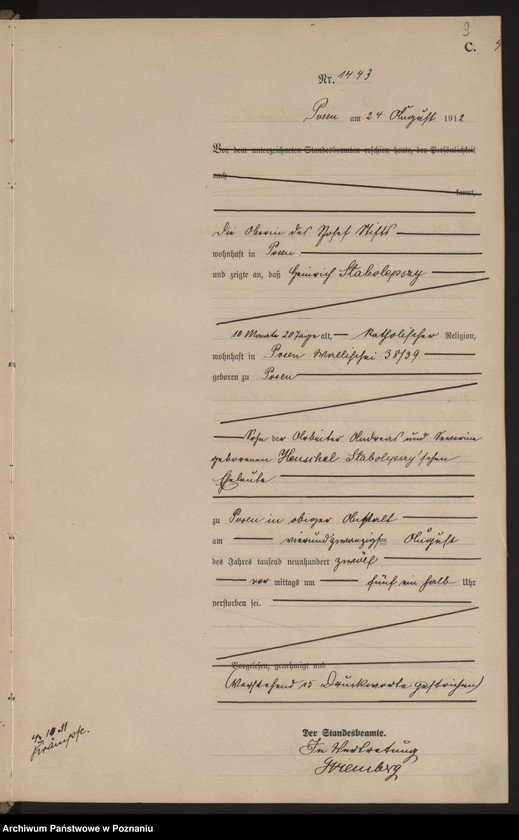 3
C.
Nr. 1443
Posen am 24 August 1912
Vor dem unterzeichneten Standesbeamten erschien heute, der Persönlichkeit
nach
kannt,
Die Oberin des Josef Stifts
wohnhaft in Posen
und zeigte an, daß Heinrich Stabolepszy
10 Monate 20 Tage alt, katholischer Religion,
wohnhaft in Posen Wallischei 38/39
geboren zu Posen
Sohn der Arbeiter Andreas und Severine
geborenen Henschel Stabolepszy'schen
Eheleute
zu Posen in obiger Anstalt
am vierundzwanzigsten August
des Jahres tausend neunhundert zwölf
vor mittags um fünf ein halb Uhr
verstorben sei.
Vorgelesen, genehmigt und
(Vorstehend 15 Druckworte gestrichen)
Der Standesbeamte.
In Vertretung
Krämpfe.
Archiwum Państwowe w Poznaniu